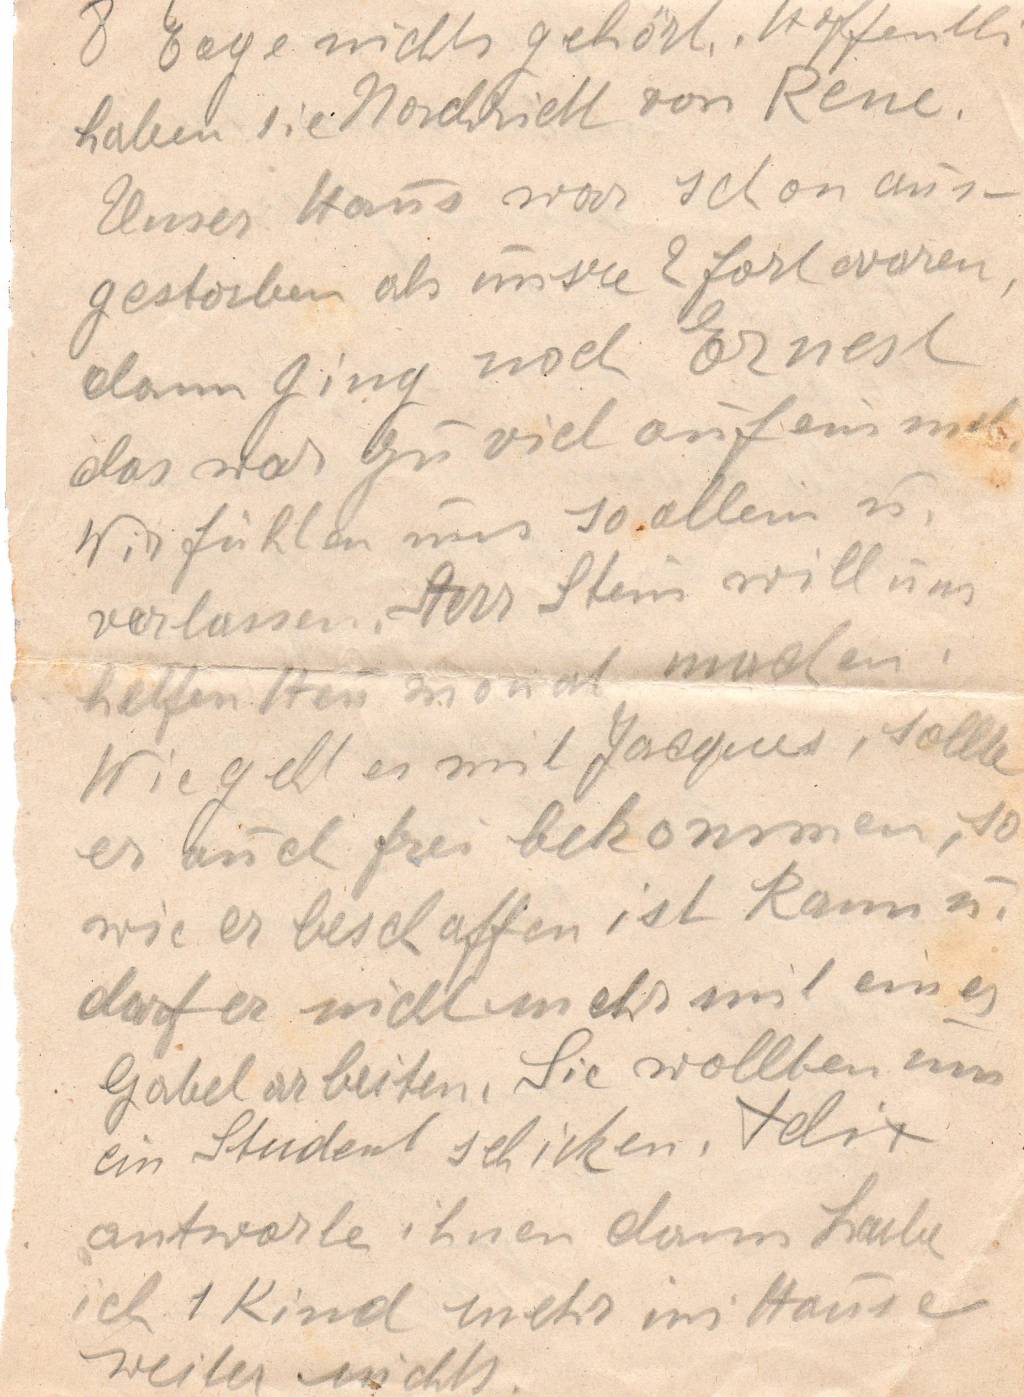 8 Tage nichts gehört. Hoffentli
haben sie Nachricht von Rene.
Unser Haus war schon aus-
gestorben als unsre 2 fort waren,
dann ging noch Ernest
das war zu viel auf ein mal.
Wir fühlen uns so allein u.
verlassen. Herr Stein will uns
helfen Heu machen.
Wie geht es mit Jacques, sollte
er auch frei bekommen, so
wie er beschaffen ist kann u.
darf er nicht mehr mit einer
Gabel arbeiten. Sie wollten uns
ein Student schicken. Felix
antworte ihnen dann habe
ich 1 Kind mehr im Hause
weiter nichts.